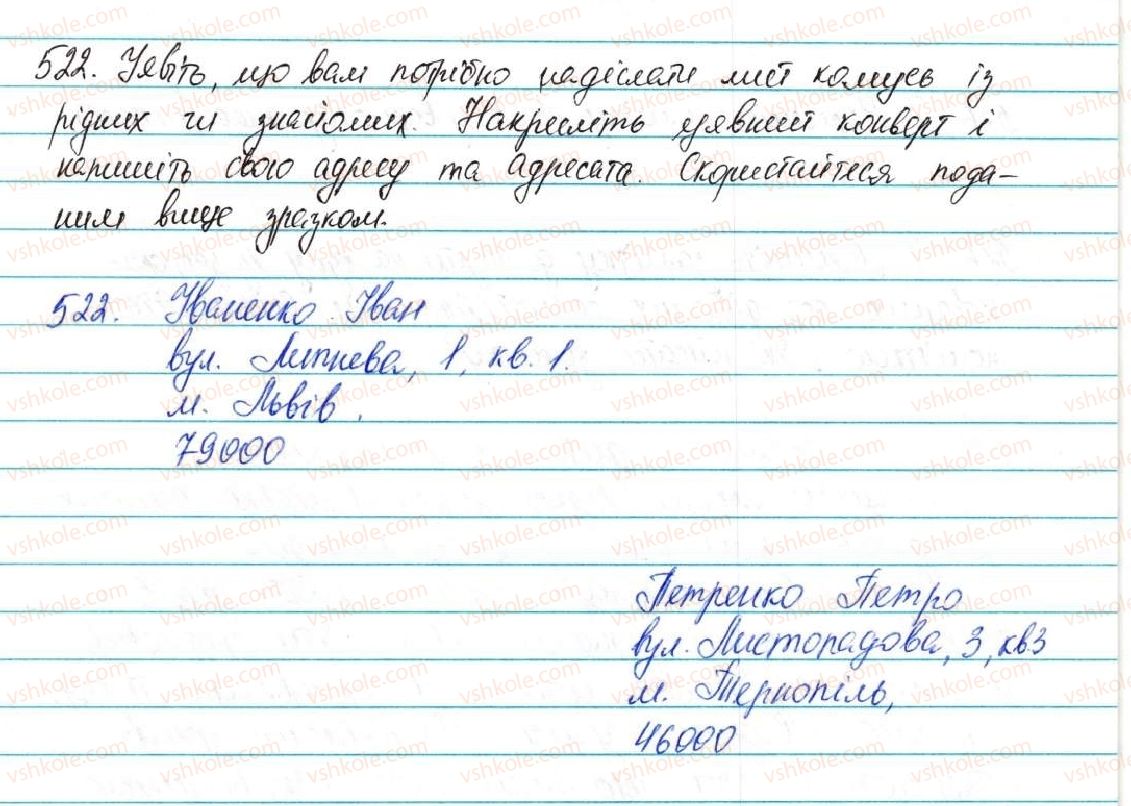 522. Уявіть, що вам потрібно надіслати лист комусь із
рідних чи знайомих. Накресліть уявний конверт і
напишіть свою адресу та адресата. Скористайтеся пода-
ним вище зразком.
522. Іваненко Іван
вул. Липнева, 1, кв. 1.
м. Львів.
79000
Петренко Петро
вул. Листопадова, 3, кв3
м. Тернопіль,
46000
vshkole.com